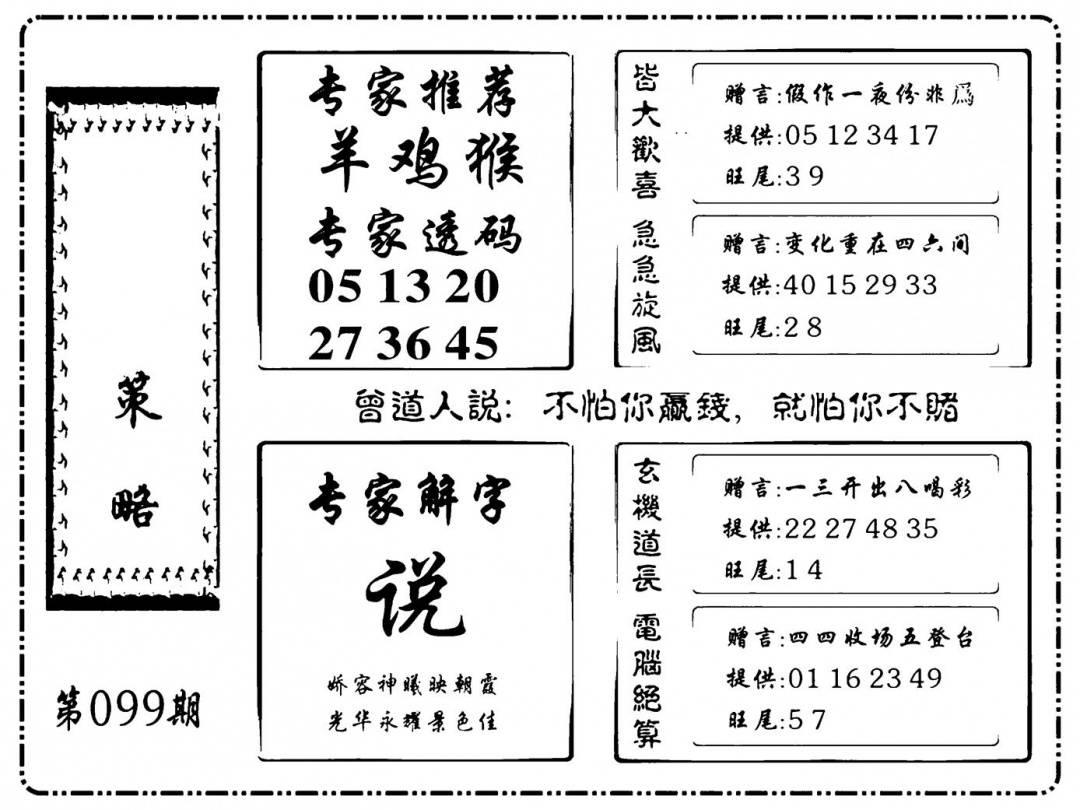 策略
第099期
专家推荐
羊鸡猴
专家透码
05 13 20
27 36 45
皆大歡喜
赠言:假作一夜份非為
提供:05 12 34 17
旺尾:3 9
急急旋風
赠言:变化重在四六间
提供:40 15 29 33
旺尾:2 8
曾道人説: 不怕你贏錢, 就怕你不賭
专家解字
说
娇容神曦映朝霞
光华永耀景色佳
玄機道長
赠言:一三开出八喝彩
提供:22 27 48 35
旺尾:1 4
電腦絕算
赠言:四四收场五登台
提供:01 16 23 49
旺尾:5 7